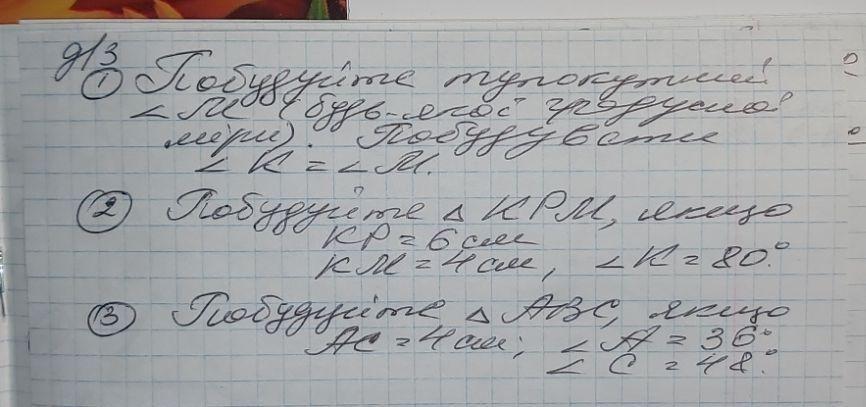 д/з
① Побудуйте тупокутний
∠M (будь-якої градусної
міри). Побудувати
∠K = ∠M.
② Побудуйте △ KPM, якщо
KP = 6 см
KM = 4 см, ∠K = 80°.
③ Побудуйте △ ABC, якщо
AC = 4 см; ∠A = 36°
∠C = 48°.